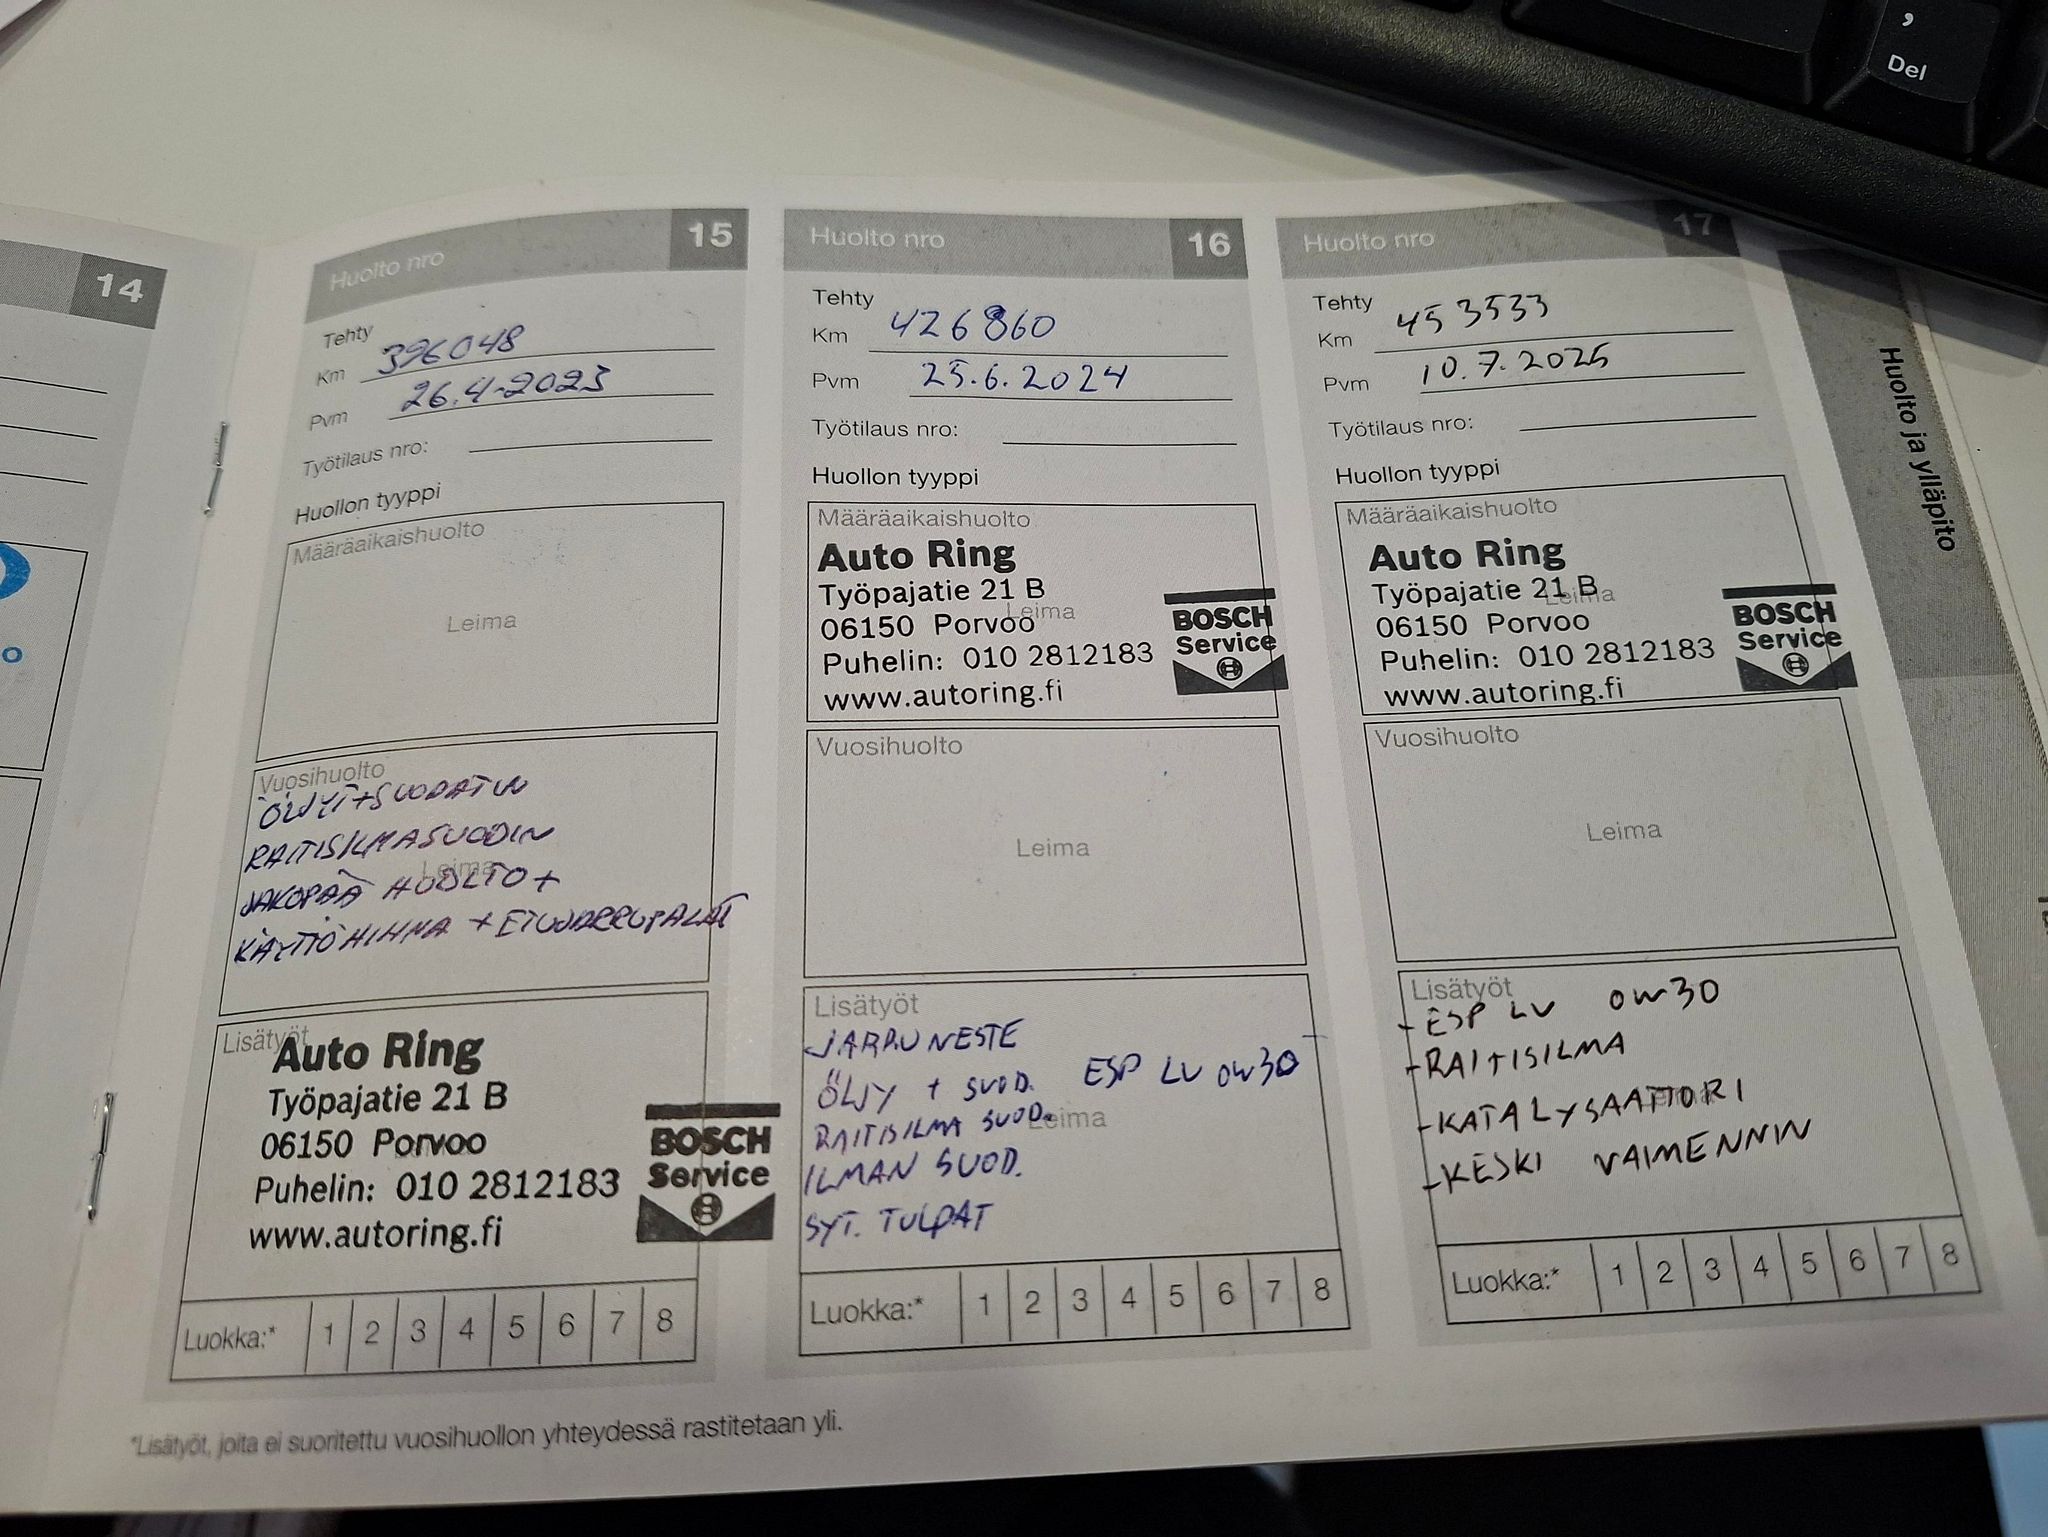 ,
Del
14
o
Huolto nro 15
Tehty
Km 396048
Pvm 26.4-2023
Työtilaus nro:
Huollon tyyppi
Määräaikaishuolto
Leima
Vuosihuolto
ÖLJYT+SUODATIN
RAITISILMASUODIN
Leima
JAKOPÄÄ HUOLTO+
KÄYTTÖHIHNA + ETUJARRUPALAT
Lisätyöt
Auto Ring
Työpajatie 21 B
06150 Porvoo
Puhelin: 010 2812183
www.autoring.fi
BOSCH
Service
Luokka:* 1 2 3 4 5 6 7 8
Huolto nro 16
Tehty
Km 426860
Pvm 25.6.2024
Työtilaus nro:
Huollon tyyppi
Määräaikaishuolto
Auto Ring
Työpajatie 21 B
Leima
06150 Porvoo
Puhelin: 010 2812183
www.autoring.fi
BOSCH
Service
Vuosihuolto
Leima
Lisätyöt
JARRUNESTE
ÖLJY + SUOD. ESP LV 0W30
RAITISILMA SUOD.
Leima
ILMAN SUOD.
SYT. TULPAT
Luokka:* 1 2 3 4 5 6 7 8
Huolto nro 17
Tehty
Km 453533
Pvm 10.7.2025
Työtilaus nro:
Huollon tyyppi
Määräaikaishuolto
Auto Ring
Työpajatie 21 B
Leima
06150 Porvoo
Puhelin: 010 2812183
www.autoring.fi
BOSCH
Service
Vuosihuolto
Leima
Lisätyöt
- ESP LV 0W30
- RAITISILMA
- KATALYSAATTORI
Leima
- KESKI VAIMENNIN
Luokka:* 1 2 3 4 5 6 7 8
*Lisätyöt, joita ei suoritettu vuosihuollon yhteydessä rastitetaan yli.
Huolto ja ylläpito